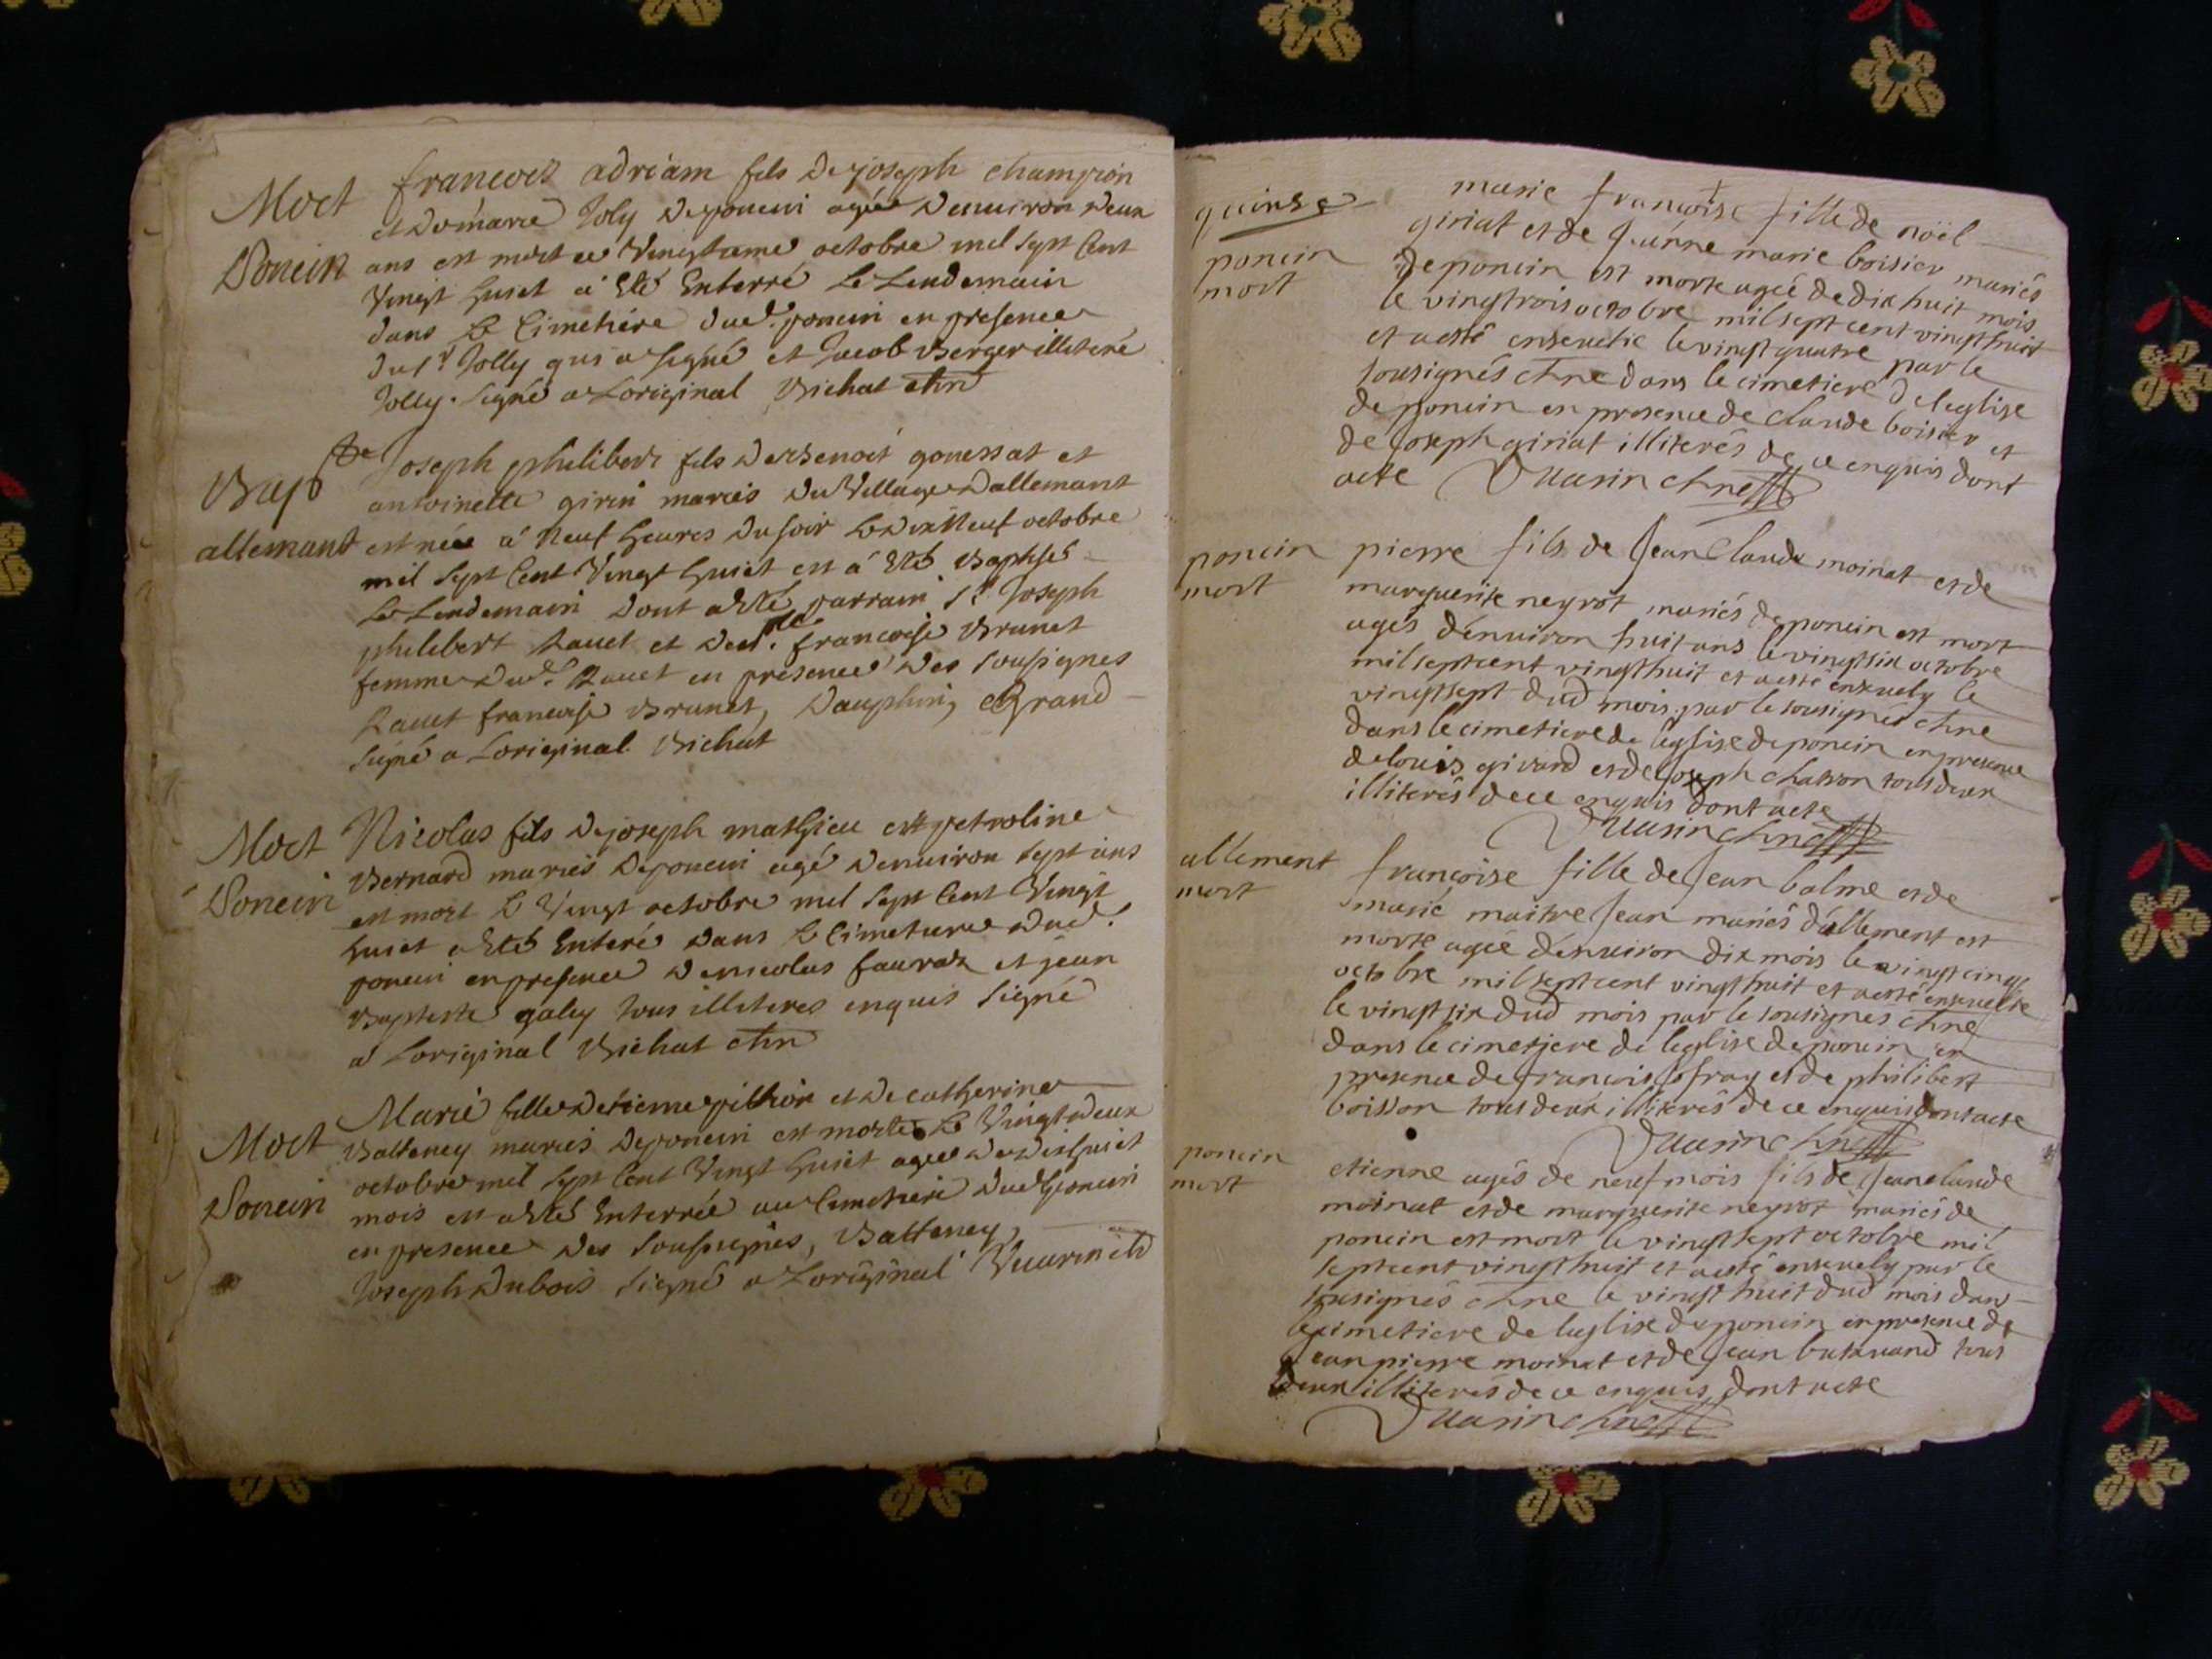 Mort
Poncin
francois adriam fils de joseph champion
et de marie Joly de poncin agé denuiron deux
ans est mort ce Vingtieme octobre mil sept Cent
Vingt huict a Eté Enterré Le Lendemain
dans Le Cimetiére dud. poncin en presence
du sr. Jolly qui a signé et Jacob Berger illiteré
Jolly. signé a Loriginal Bichat chne
Bap
allemant
Joseph philibert fils de Benoit gonessat et
antoinette girin mariés du Village dallemant
est née á Neuf heures du soir Le dix Neuf octobre
mil sept Cent Vingt huict est á Eté Baptisé
Le Lendemain dont a Eté parrain sr. Joseph
philibert Rauet et dell. francoise Brunet
femme dud. Rauet en presence des soussignes
Rauet francoise Brunet, Dauphin, Grand
signé a Loriginal Bichat
Mort
Poncin
Nicolas fils de joseph mathieu et petroline
Bernard mariés de poncin agé denuiron sept ans
est mort Le Vingt octobre mil sept Cent Vingt
huict a Eté Enteré dans Le Cimetiere dud.
poncin en presence de nicolas fauraz et jean
Baptiste galey tous illiteres enquis signé
a Loriginal Bichat chne
Mort
Poncin
Marie fille detienne pithion et de catherine
Batteney mariés de poncin est morte Le Vingt deux
octobre mil sept Cent Vingt huict agée de dixhuict
mois est a Eté Enterrée au Cimetiere dud poncin
en presence des soussignés, Batteney,
Joseph Dubois signé a Loriginal Vuarin ch
quinse
poncin
mort
marie francoise fille de noël
giriat et de jeanne marie boisier mariés
de poncin est morte agée de dix huit mois
le vingtrois octobre mil sept cent vingt huit
et a esté enseuelie le vingt quatre par le
sousignés chne dans le cimetiere de leglise
de poncin en presence de claude boisier et
de Joseph giriat illiterés de ce enquis dont
acte Vuarin chne
poncin
mort
pierre fils de Jean Claude moinat et de
marguerite neyrot mariés de poncin est mort
agés dénuiron huit ans le vingt six octobre
mil sept cent vingt huit et a esté enseuely le
vingt sept dud mois par le sousignés chne
dans le cimetiere de leglise de poncin en presence
de louis girard et de Joseph chatron tous deux
illiterés de ce enquis dont acte
Vuarin chne
allement
mort
francoise fille de Jean balme et de
marie maitre Jean mariés dallement est
morte agée dénuiron dix mois le vingt cinq
octobre mil sept cent vingt huit et a esté enseuelie
le vingt six dud mois par le sousignes chne
dans le cimetiere de leglise de poncin en
presence de francois fray et de philibert
boisson tous deux illiterés de ce enquis dont acte
Vuarin chne
poncin
mort
etienne agés de neuf mois fils de Jean claude
moinat et de marguerite neyrot mariés de
poncin est mort le vingt sept octobre mil
sept cent vingt huit et a esté enseuely par le
sousignés chne le vingt huit dud mois dans
le cimetiere de leglise de poncin en presence de
Jean pierre moinat et de Jean tous
deux illiterés de ce enquis dont acte
Vuarin chne